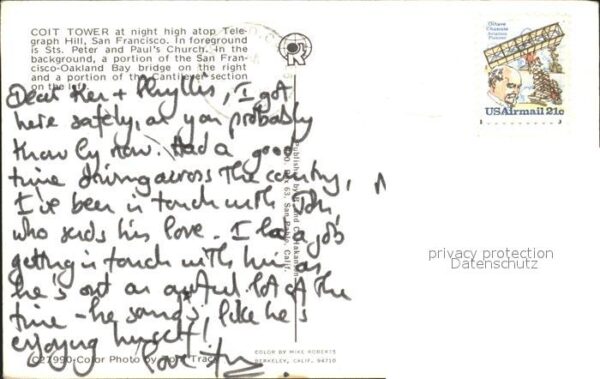 COIT TOWER at night high atop Tele-
graph Hill, San Francisco. In foreground
is Sts. Peter and Paul's Church. In the
background, a portion of the San Fran-
cisco-Oakland Bay bridge on the right
and a portion of the Cantilever section
on the left.
Dear Ken + Phyllis, I got
here safely, as you probably
know by now. Had a good
time driving across the country,
I've been in touch with John,
who sends his love. I had a job
getting in touch with him as
he's out an awful lot of the
time - he sounds like he's
enjoying himself!
Love
C27990-Color Photo by Tom Tracy
Published by H. and C. Hakanson
P.O. Box 63, San Pablo, Calif.
COLOR BY MIKE ROBERTS
BERKELEY, CALIF. 94710
R
Octave
Chanute
Aviation
Pioneer
USAirmail 21c
privacy protection
Datenschutz